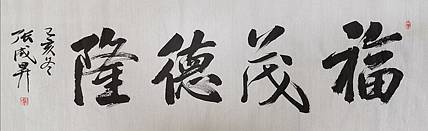 福茂德隆
己亥冬
張成昇